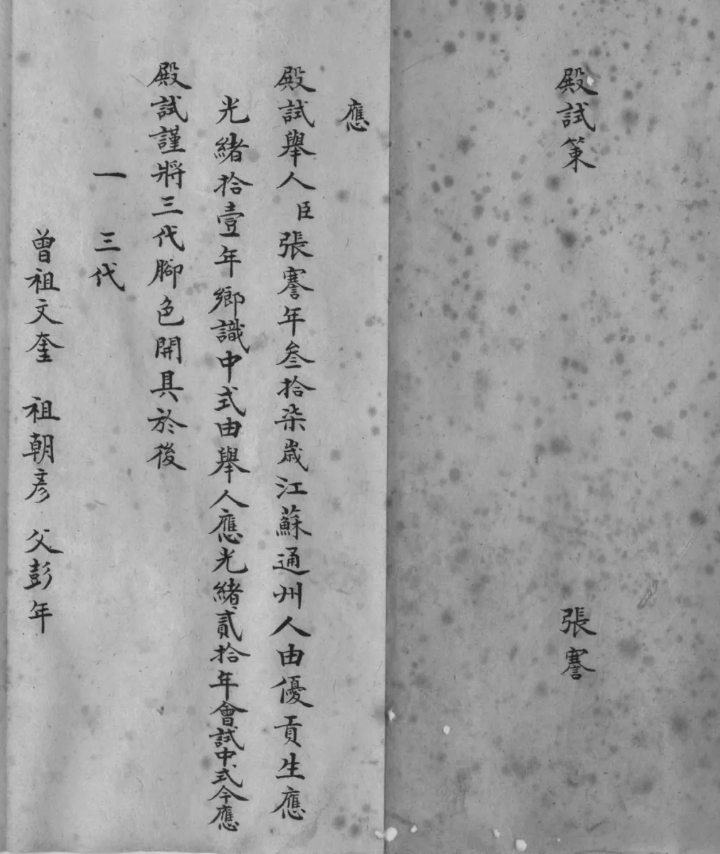 殿試策
張謇
應
殿試舉人臣張謇年叁拾柒歲江蘇通州人由優貢生應
光緒拾壹年鄉識中式由舉人應光緒貳拾年會試中式今應
殿試謹將三代腳色開具於後
一 三代
曾祖文奎 祖朝彥 父彭年